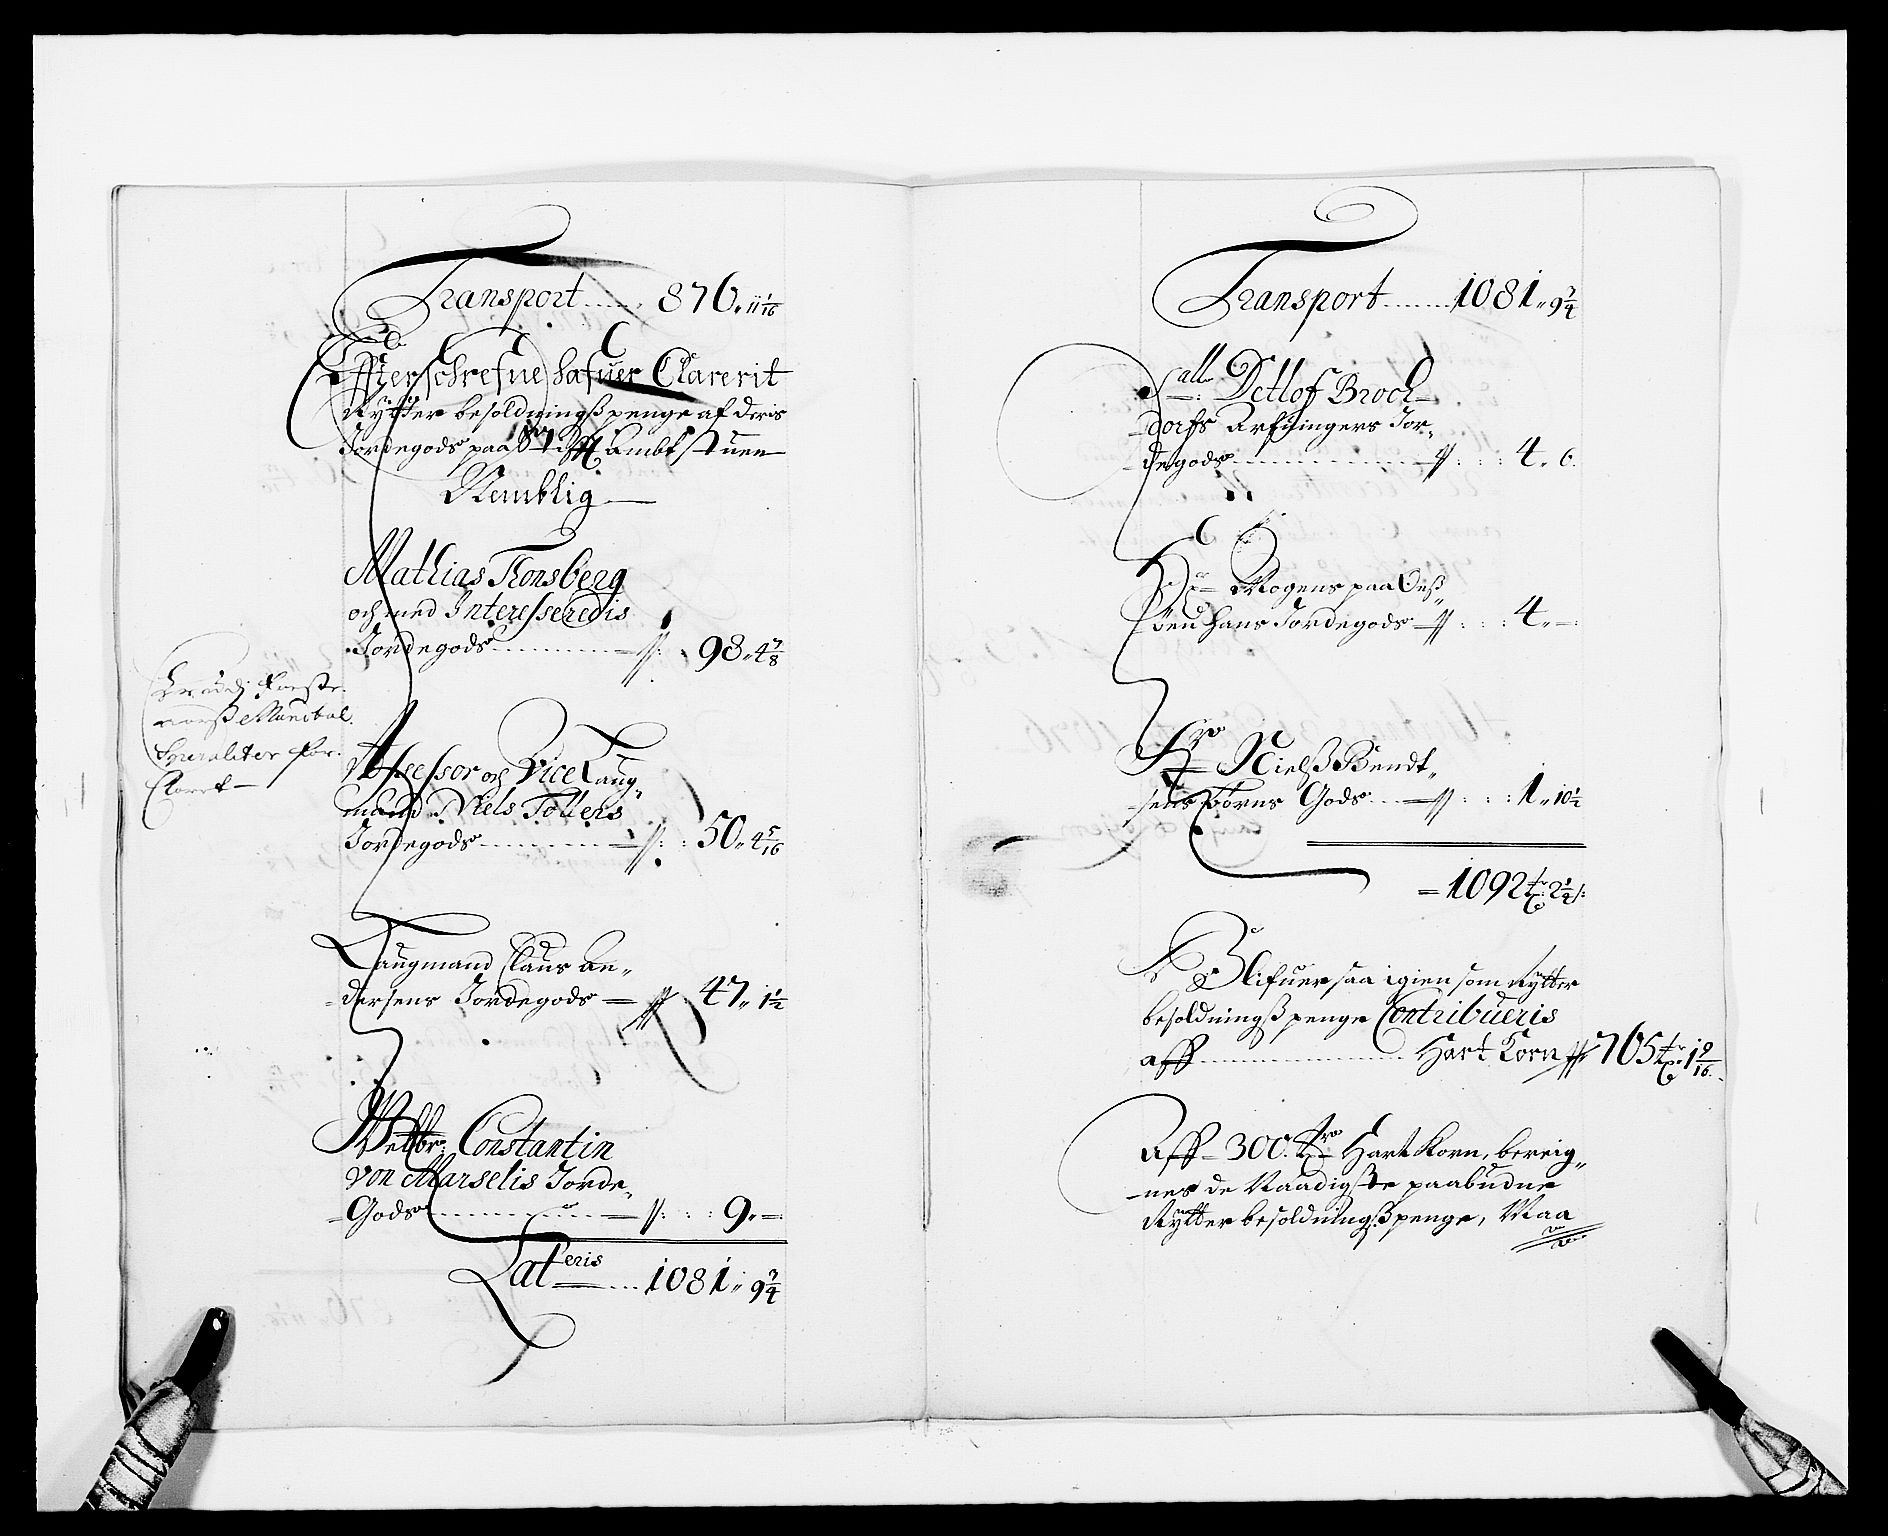 Transport ...... 876 „ 11 1/16
Effterschrefne hafuer Clarerit
Rytter besoldningß penge af deris
Jordegods paa Ambtstuen
Nemblig
Mathias Tonsberg
och med Interesseredis
Jordegods ...... 98 „ 4 7/8
Assessor och Vice Laug„
mand Niels Tollers
Jordegods ...... 50 „ 4 5/16
Laugmand Claus An„
dersens Jordegods — 47 „ 1 1/2
Welbr: Constantin
von Marselis Jorde„
Gods ...... 9 „ —
Lateris ...... 1081 „ 9 3/4
Transport ...... 1081 „ 9 3/4
Sall: Detlof Broch
dorfs Arfvingers Jor„
degods ...... 4 „ 6
Hr Mogens paa
hans Jordegods — 4 „ —
Nielß Bendt„
sens Børns Gods ...... 1 „ 10 1/2
= 1092 tr 2 1/4
Blifuer saa igien som Rytter
besoldningß penge Contribueris
aff ...... Hart Korn 705 tr 1 9/16
Aff 300 Hart Korn, bereig„
nes de Naadigste paabudne
Rytter besoldningß penge, Maa